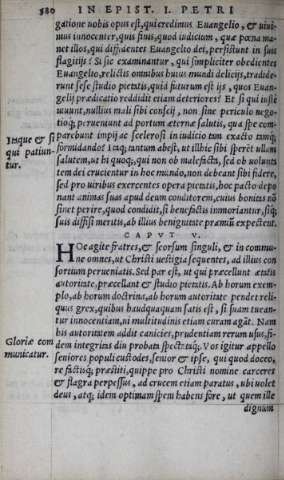 380 IN EPIST. I. PETRI
gatione uobis opus est, qui credimus Euangelio, & uiui-
mus innocenter, quis finis, quod iudicium, quæ pœna ma-
net illos, qui diffidentes Euangelio dei, persistunt in suis
flagitijs? Si sic examinantur, qui simpliciter obedientes
Euangelio, relictis omnibus huius mundi delicijs, tradide-
runt sese studio pietatis, quid futurum est ijs, quos Euan-
gelij prædicatio reddidit etiam deteriores? Et si qui iuste
uiuunt, nullius mali sibi conscij, non sine periculo nego-
tioq; perueniunt ad portum æternæ salutis, qua spe com-
Itaque & si
parebunt impij ac scelerosi in iudicio tam exacto tamq;
qui patiun-
formidando? Itaq; tantum abest, ut illhic sibi sperēt ullam
tur.
salutem, ut hi quoq;, qui non ob malefacta, sed ob uolunta
tem dei cruciantur in hoc mundo, non debeant sibi fidere,
sed pro uiribus exercentes opera pietatis, hoc pacto depo
nant animas suas apud deum conditorem, cuius bonitas nō
sinet perire, quod condidit, si benefactis immoriantur, siq;
suis diffisi meritis, ab illius benignitate præmiū expectent.
CAPVT V.
HOc agite fratres, & seorsum singuli, & in commu-
ne omnes, ut Christi uestigia sequentes, ad illius con
sortium perueniatis. Sed par est, ut qui præcellunt ætatis
autoritate, præcellant & studio pietatis. Ab horum exem-
plo, ab horum doctrina, ab horum autoritate pendet reli-
quus grex, quibus haudquaquam satis est, si suam tuean-
tur innocentiam, ni multitudinis etiam curam agāt. Nam
his autoritatem addit canicies, prudentiam rerum usus, fi-
Gloriæ com
dem integritas diu probata spectataq;. Vos igitur appello
municatur.
seniores populi custodes, senior & ipse, qui quod doceo,
re factisq; præstiti, quippe pro Christi nomine carceres
& flagra perpessus, ad crucem etiam paratus, ubi uolet
deus, atq; idem optimam spem habens fore, ut quem ille
dignum